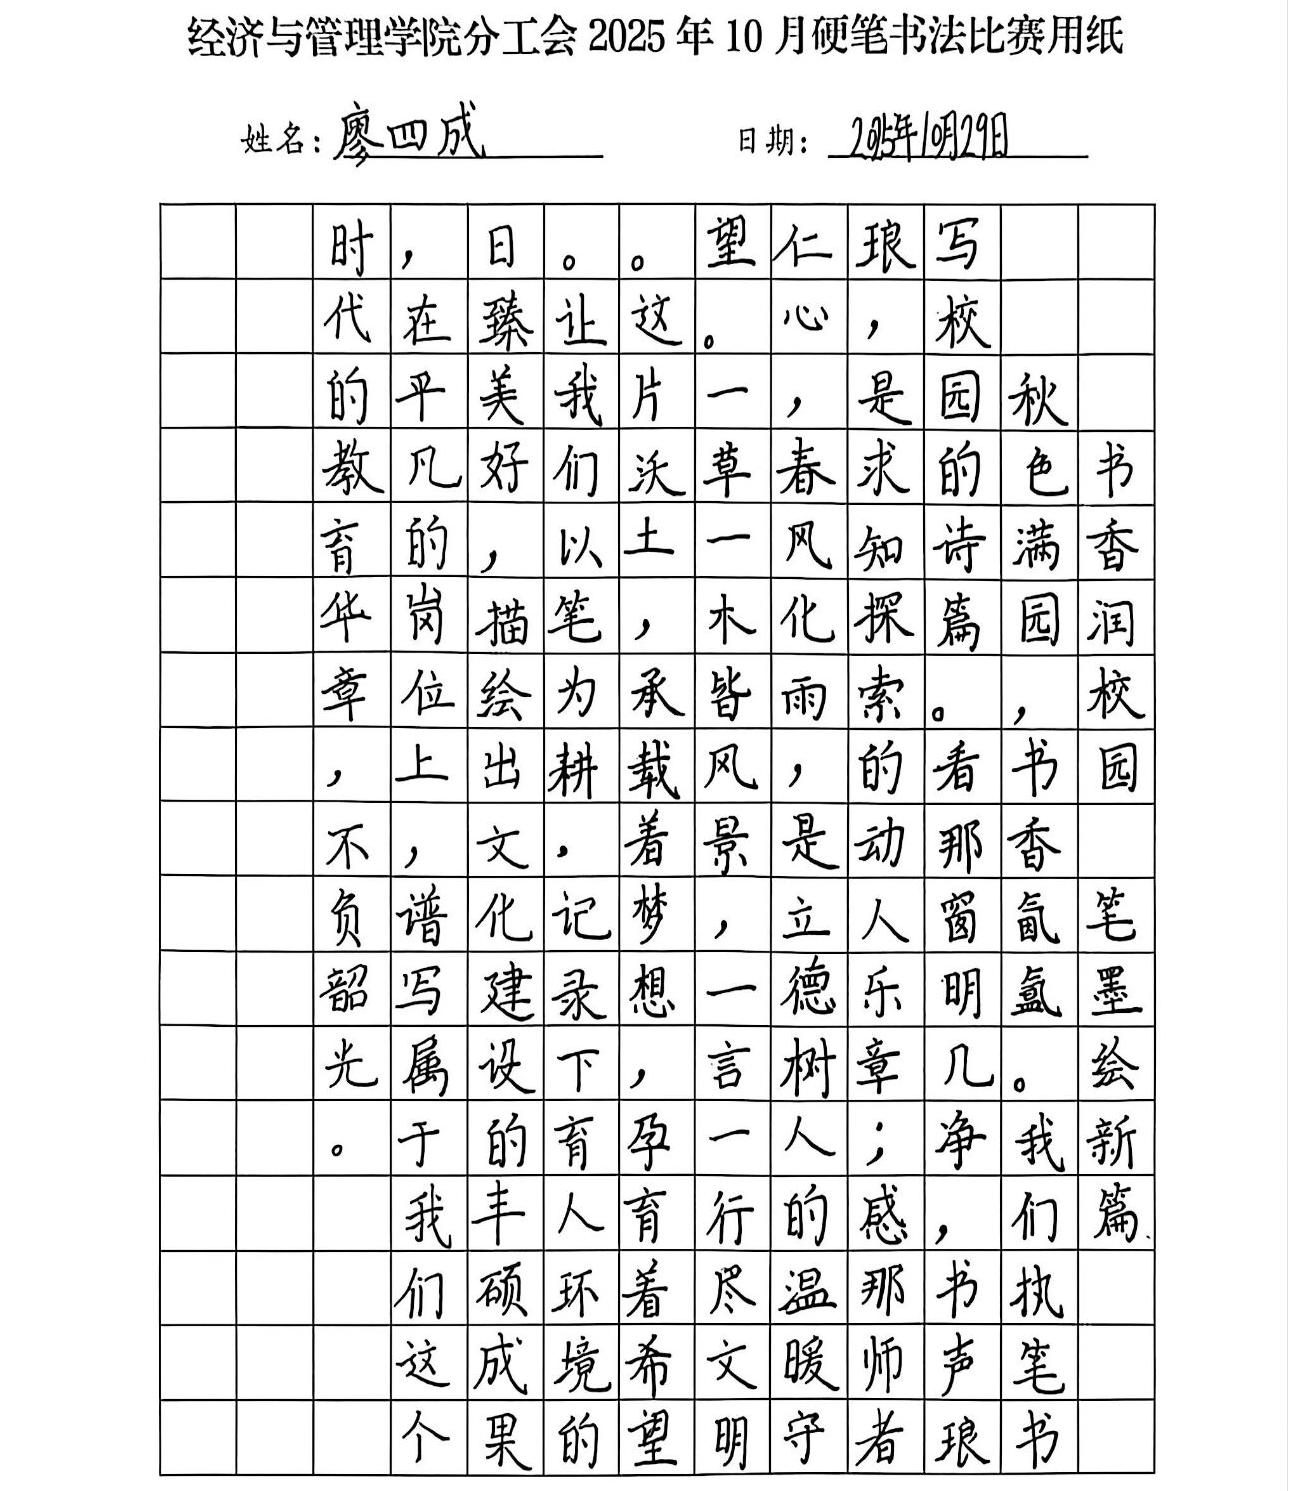 经济与管理学院分工会2025年10月硬笔书法比赛用纸
姓名：廖四成
日期：2025年10月29日
书香润校园 笔墨绘新篇
秋色满园，书香氤氲。我们执笔书
写校园的诗篇。看那窗明几净，书声琅
琅，是求知探索的动人乐章；感那师者
仁心，春风化雨，是立德树人的温暖守
望。一草一木皆风景，一言一行尽文明
。这片沃土，承载着梦想，孕育着希望
。让我们以笔为耕，记录下育人环境的
日臻美好，描绘出文化建设的丰硕成果
，在平凡的岗位上，谱写属于我们这个
时代的教育华章，不负韶光。